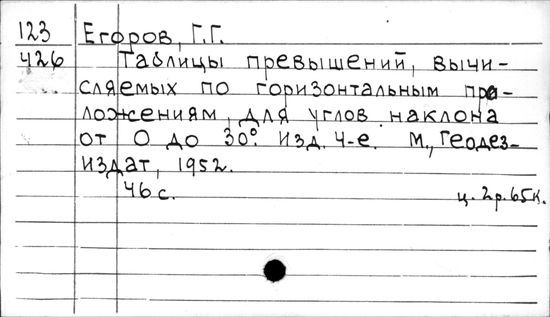 123 Егоров, Г.Г.
426 Таблицы превышений, вычи-
сляемых по горизонтальным про-
ложениям, для углов наклона
от 0 до 30°. Изд. 4-е. М., Геодез-
издат, 1952.
46 с. ц. 2р. 65к.